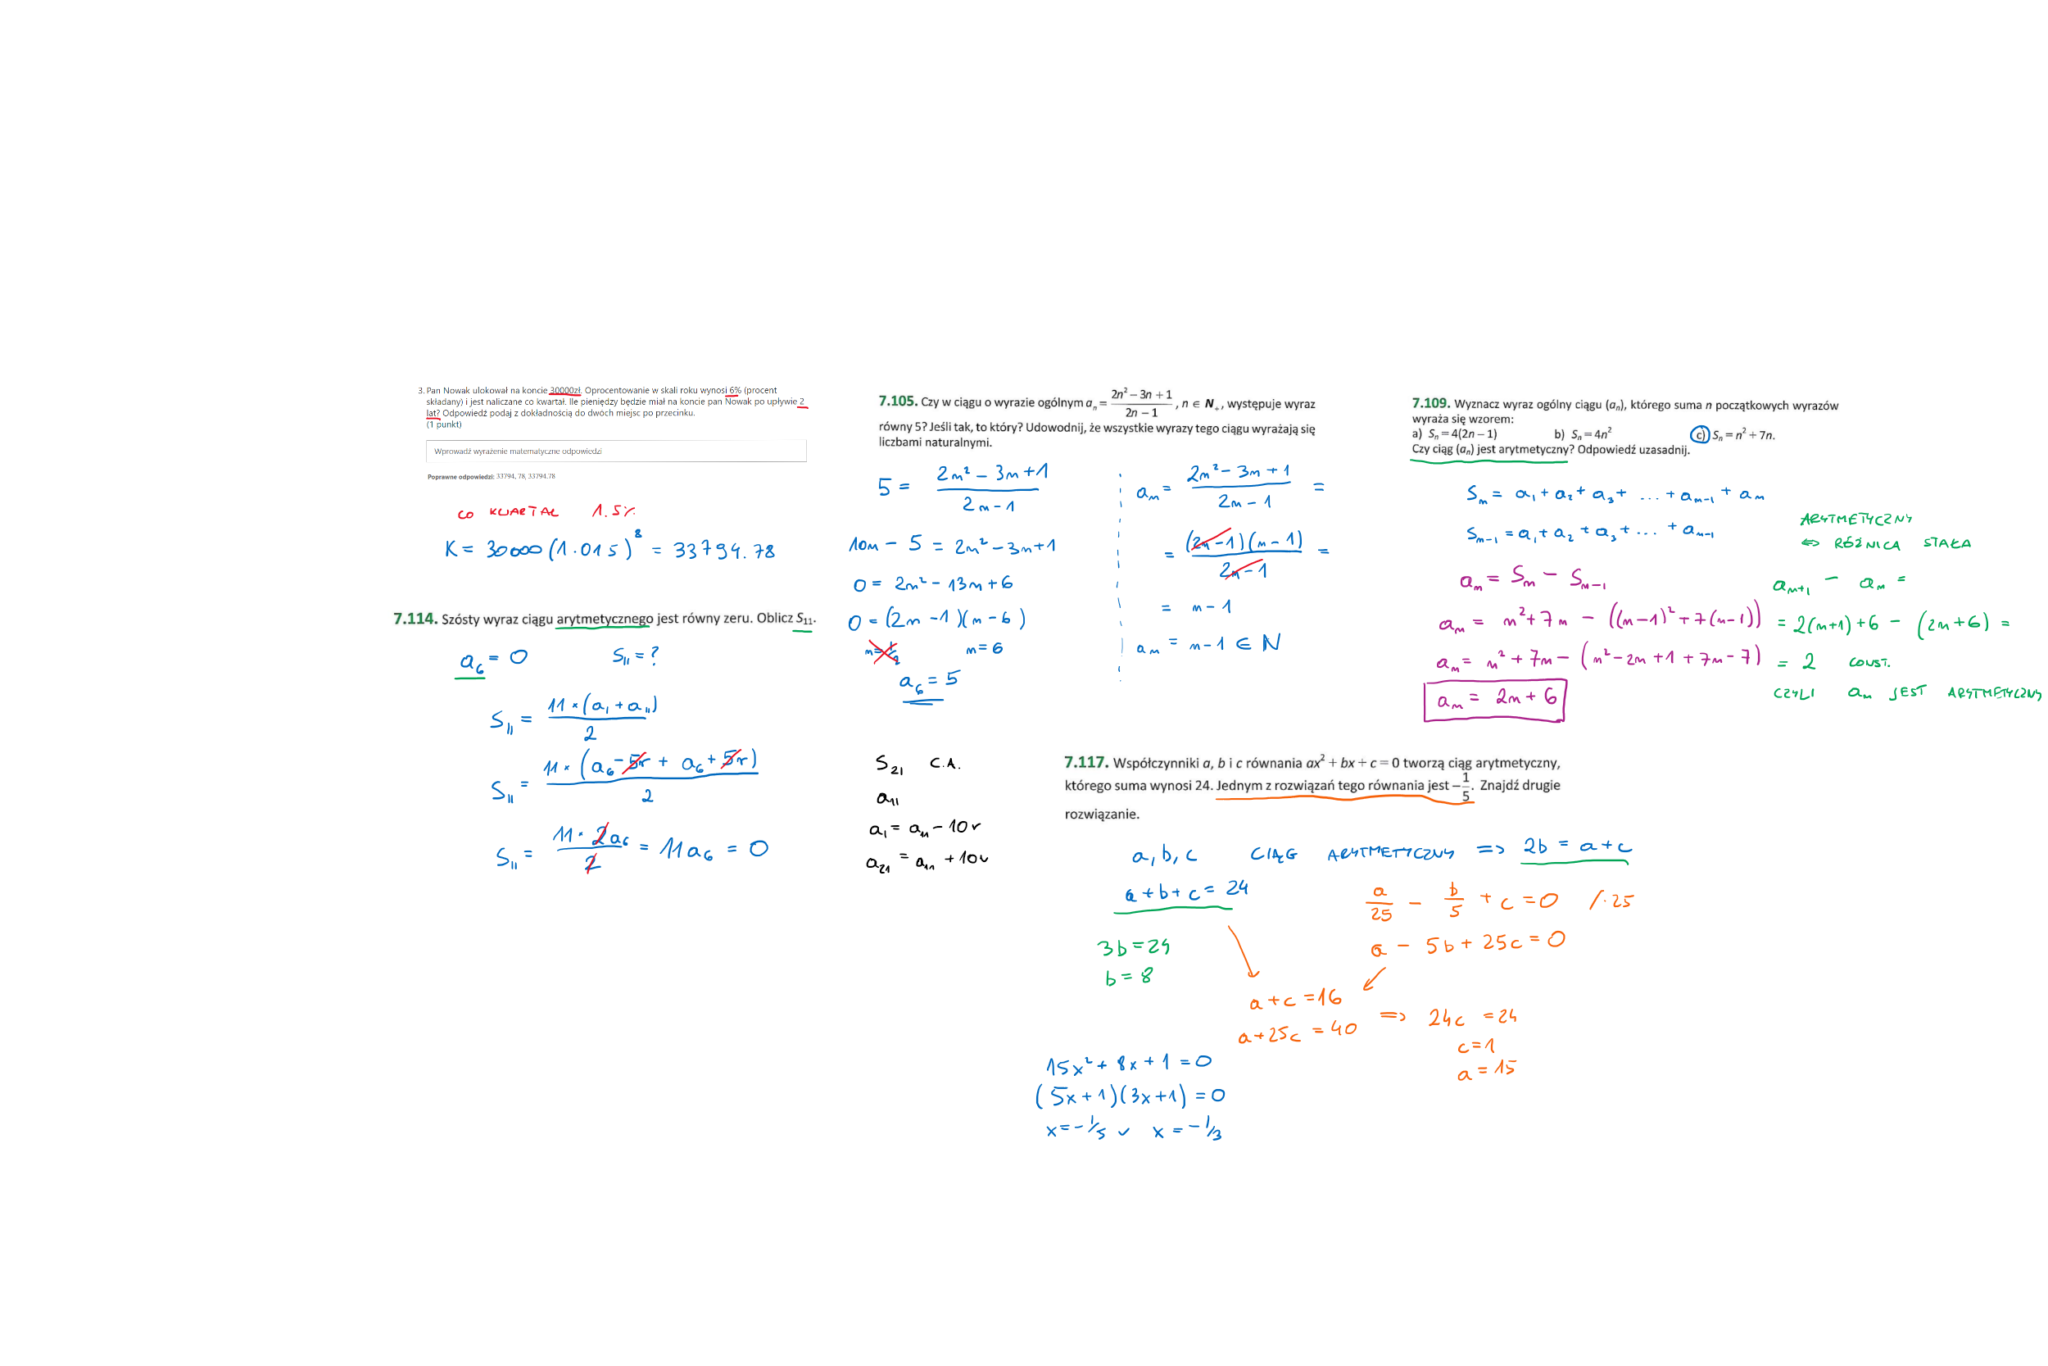 3. Pan Nowak ulokował na koncie 30000zł. Oprocentowanie w skali roku wynosi 6% (procent
składany) i jest naliczane co kwartał. Ile pieniędzy będzie miał na koncie pan Nowak po upływie 2
lat? Odpowiedź podaj z dokładnością do dwóch miejsc po przecinku.
(1 punkt)
Wprowadź wyrażenie matematyczne odpowiedzi
Poprawne odpowiedzi: 33794, 78, 33794.78
CO KWARTAŁ 1.5%
K = 30000 (1.015)⁸ = 33794.78
7.114. Szósty wyraz ciągu arytmetycznego jest równy zeru. Oblicz S₁₁.
a₆ = 0 S₁₁ = ?
S₁₁ = 11·(a₁ + a₁₁) / 2
S₁₁ = 11·(a₆ - 5r + a₆ + 5r) / 2
S₁₁ = 11·2a₆ / 2 = 11a₆ = 0
7.105. Czy w ciągu o wyrazie ogólnym aₙ = (2n² – 3n + 1) / (2n – 1), n ∈ N₊, występuje wyraz
równy 5? Jeśli tak, to który? Udowodnij, że wszystkie wyrazy tego ciągu wyrażają się
liczbami naturalnymi.
5 = (2n² - 3n + 1) / (2n - 1)
10n - 5 = 2n² - 3n + 1
0 = 2n² - 13n + 6
0 = (2n - 1)(n - 6)
n = ½ n = 6
a₆ = 5
aₙ = (2n² - 3n + 1) / (2n - 1) =
= (2n - 1)(n - 1) / (2n - 1) =
= n - 1
aₙ = n - 1 ∈ N
S₂₁ C.A.
a₁₁
a₁ = a₁₁ - 10r
a₂₁ = a₁₁ + 10r
7.109. Wyznacz wyraz ogólny ciągu (aₙ), którego suma n początkowych wyrazów
wyraża się wzorem:
a) Sₙ = 4(2n – 1) b) Sₙ = 4n² c) Sₙ = n² + 7n.
Czy ciąg (aₙ) jest arytmetyczny? Odpowiedź uzasadnij.
Sₙ = a₁ + a₂ + a₃ + ... + aₙ₋₁ + aₙ
Sₙ₋₁ = a₁ + a₂ + a₃ + ... + aₙ₋₁
aₙ = Sₙ - Sₙ₋₁
aₙ = n² + 7n - ((n-1)² + 7(n-1))
aₙ = n² + 7n - (n² - 2n + 1 + 7n - 7)
aₙ = 2n + 6
ARYTMETYCZNY
⇔ RÓŻNICA STAŁA
aₙ₊₁ - aₙ =
= 2(n+1) + 6 - (2n+6) =
= 2 CONST.
CZYLI aₙ JEST ARYTMETYCZNY
7.117. Współczynniki a, b i c równania ax² + bx + c = 0 tworzą ciąg arytmetyczny,
którego suma wynosi 24. Jednym z rozwiązań tego równania jest –1/5. Znajdź drugie
rozwiązanie.
a, b, c CIĄG ARYTMETYCZNY => 2b = a + c
a + b + c = 24
3b = 24
b = 8
a/25 - b/5 + c = 0 /·25
a - 5b + 25c = 0
a + c = 16
a + 25c = 40 => 24c = 24
c = 1
a = 15
15x² + 8x + 1 = 0
(5x + 1)(3x + 1) = 0
x = -1/5 ∨ x = -1/3